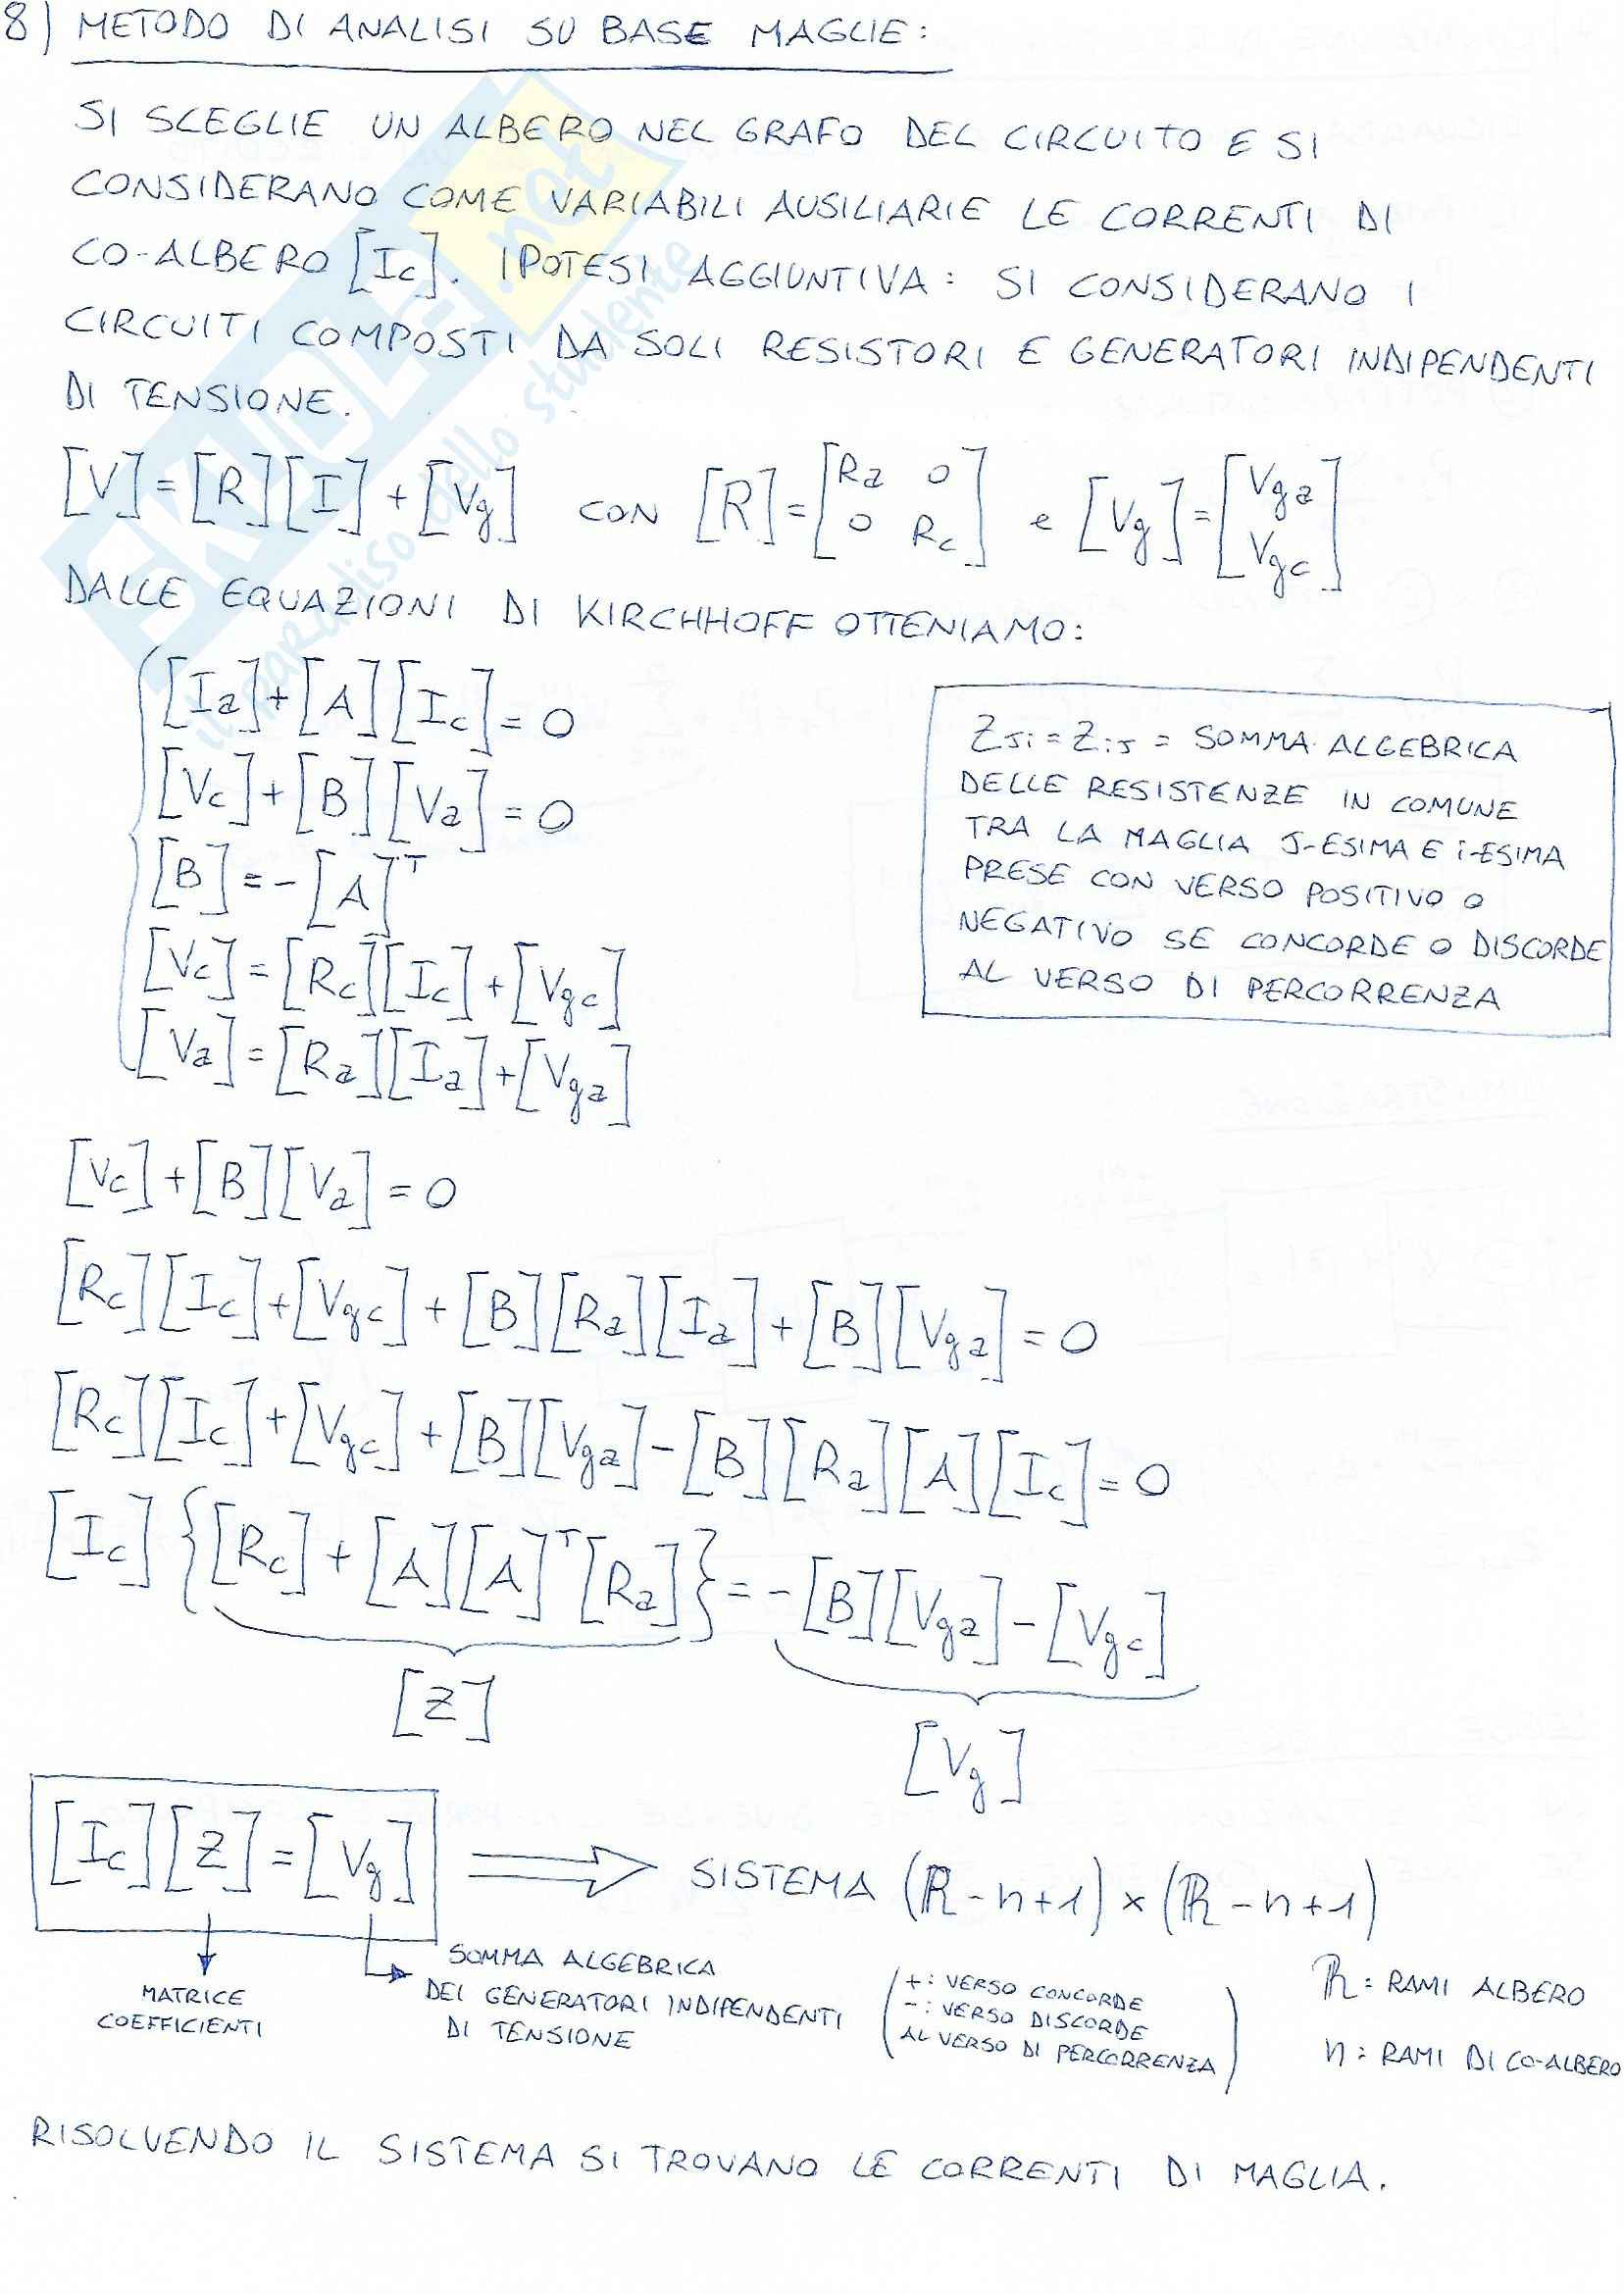 8) METODO DI ANALISI SU BASE MAGLIE:
SI SCEGLIE UN ALBERO NEL GRAFO DEL CIRCUITO E SI
CONSIDERANO COME VARIABILI AUSILIARIE LE CORRENTI DI
CO-ALBERO [Ic]. IPOTESI AGGIUNTIVA: SI CONSIDERANO I
CIRCUITI COMPOSTI DA SOLI RESISTORI E GENERATORI INDIPENDENTI
DI TENSIONE.
[V]=[R][I]+[Vg] CON [R]=[Ra 0 0 Rc] e [Vg]=[Vga Vgc]
DALLE EQUAZIONI DI KIRCHHOFF OTTENIAMO:
[Ia]+[A][Ic]=0
[Vc]+[B][Va]=0
[B]=-[A]ᵀ
[Vc]=[Rc][Ic]+[Vgc]
[Va]=[Ra][Ia]+[Vga]
Zji=Zij= SOMMA ALGEBRICA
DELLE RESISTENZE IN COMUNE
TRA LA MAGLIA J-ESIMA E i-ESIMA
PRESE CON VERSO POSITIVO O
NEGATIVO SE CONCORDE O DISCORDE
AL VERSO DI PERCORRENZA
[Vc]+[B][Va]=0
[Rc][Ic]+[Vgc]+[B][Ra][Ia]+[B][Vga]=0
[Rc][Ic]+[Vgc]+[B][Vga]-[B][Ra][A][Ic]=0
[Ic]{[Rc]+[A][A]ᵀ[Ra]}=-[B][Vga]-[Vgc]
[Z]
[Vg]
[Ic][Z]=[Vg] ⟹ SISTEMA (ℝ-n+1)×(ℝ-n+1)
MATRICE
COEFFICIENTI
SOMMA ALGEBRICA
DEI GENERATORI INDIPENDENTI
DI TENSIONE
(+: VERSO CONCORDE
-: VERSO DISCORDE
AL VERSO DI PERCORRENZA)
ℝ: RAMI ALBERO
n: RAMI DI CO-ALBERO
RISOLVENDO IL SISTEMA SI TROVANO LE CORRENTI DI MAGLIA.
SKUOLA.net
il paradiso dello studente